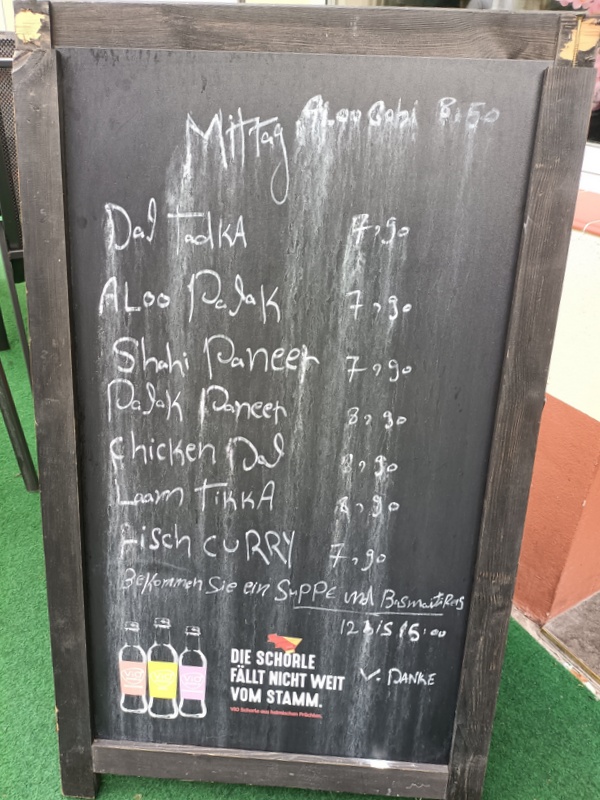 Mittag Aloo Gobi 8,50
Dal Tadka 7,90
Aloo Palak 7,90
Shahi Paneer 7,90
Palak Paneer 8,90
Chicken Dal 8,90
Laam Tikka 8,90
Fisch CURRY 7,90
Bekommen Sie ein Suppe und BasmatiReis
12 bis 15:00
DIE SCHORLE
FÄLLT NICHT WEIT
VOM STAMM.
ViO Schorle aus heimischen Früchten.
V. DANKE